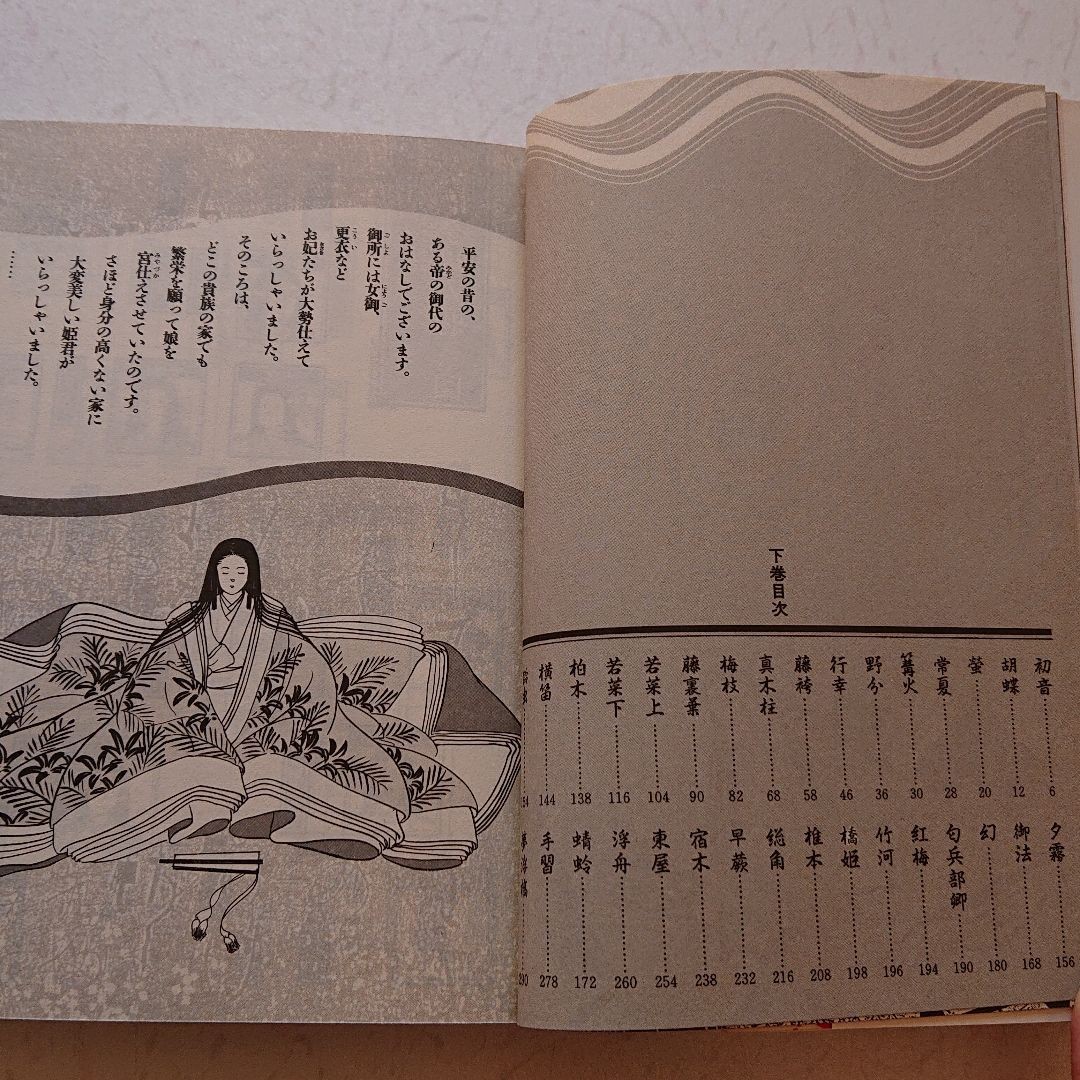 下巻目次
初音 6
胡蝶 12
螢 20
常夏 28
篝火 30
野分 36
行幸 46
藤袴 58
真木柱 68
梅枝 82
藤裏葉 90
若菜上 104
若菜下 116
柏木 138
横笛 144
夕霧 156
御法 168
幻 180
匂兵部卿 190
紅梅 194
竹河 196
橋姫 198
椎本 208
総角 216
早蕨 232
宿木 238
東屋 254
浮舟 260
蜻蛉 172
手習 278
290
平安の昔の、
ある帝の御代の
おはなしでございます。
御所には女御、
更衣など
お妃たちが大勢仕えて
いらっしゃいました。
そのころは、
どこの貴族の家でも
繁栄を願って娘を
宮仕えさせていたのです。
さほど身分の高くない家に
大変美しい姫君が
いらっしゃいました。
……